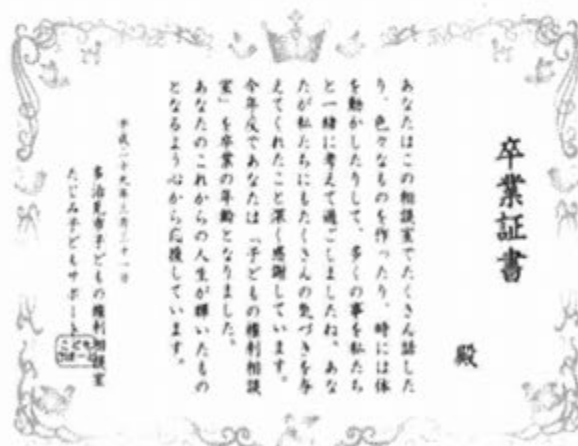 卒業証書
殿
あなたはこの相談室でたくさん話した
り、色々なものを作ったり、時には体
を動かしたりして、多くの事を私たち
と一緒に考えて過ごしましたね。あな
たが私たちにもたくさんの気づきを与
えてくれたこと深く感謝しています。
今年度であなたは「子どもの権利相談
室」を卒業の年齢となりました。
あなたのこれからの人生が輝いたもの
となるよう心から応援しています。
平成二十九年三月三十一日
多治見市子どもの権利相談室
たじみ子どもサポート